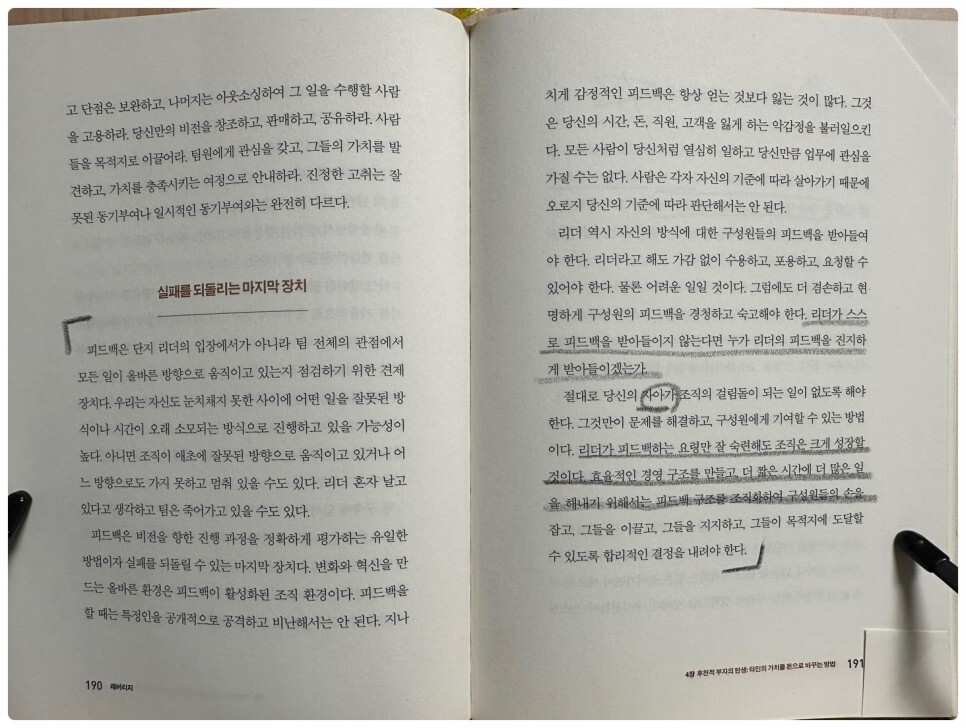 고 단점은 보완하고, 나머지는 아웃소싱하여 그 일을 수행할 사람
을 고용하라. 당신만의 비전을 창조하고, 판매하고, 공유하라. 사람
들을 목적지로 이끌어라. 팀원에게 관심을 갖고, 그들의 가치를 발
견하고, 가치를 충족시키는 여정으로 안내하라. 진정한 고취는 잘
못된 동기부여나 일시적인 동기부여와는 완전히 다르다.
실패를 되돌리는 마지막 장치
피드백은 단지 리더의 입장에서가 아니라 팀 전체의 관점에서
모든 일이 올바른 방향으로 움직이고 있는지 점검하기 위한 견제
장치다. 우리는 자신도 눈치채지 못한 사이에 어떤 일을 잘못된 방
식이나 시간이 오래 소모되는 방식으로 진행하고 있을 가능성이
높다. 아니면 조직이 애초에 잘못된 방향으로 움직이고 있거나 어
느 방향으로도 가지 못하고 멈춰 있을 수도 있다. 리더 혼자 날고
있다고 생각하고 팀은 죽어가고 있을 수도 있다.
피드백은 비전을 향한 진행 과정을 정확하게 평가하는 유일한
방법이자 실패를 되돌릴 수 있는 마지막 장치다. 변화와 혁신을 만
드는 올바른 환경은 피드백이 활성화된 조직 환경이다. 피드백을
할 때는 특정인을 공개적으로 공격하고 비난해서는 안 된다. 지나
190 레버리지
치게 감정적인 피드백은 항상 얻는 것보다 잃는 것이 많다. 그것
은 당신의 시간, 돈, 직원, 고객을 잃게 하는 악감정을 불러일으킨
다. 모든 사람이 당신처럼 열심히 일하고 당신만큼 업무에 관심을
가질 수는 없다. 사람은 각자 자신의 기준에 따라 살아가기 때문에
오로지 당신의 기준에 따라 판단해서는 안 된다.
리더 역시 자신의 방식에 대한 구성원들의 피드백을 받아들여
야 한다. 리더라고 해도 가감 없이 수용하고, 포용하고, 요청할 수
있어야 한다. 물론 어려운 일일 것이다. 그럼에도 더 겸손하고 현
명하게 구성원의 피드백을 경청하고 숙고해야 한다. 리더가 스스
로 피드백을 받아들이지 않는다면 누가 리더의 피드백을 진지하
게 받아들이겠는가.
절대로 당신의 자아가 조직의 걸림돌이 되는 일이 없도록 해야
한다. 그것만이 문제를 해결하고, 구성원에게 기여할 수 있는 방법
이다. 리더가 피드백하는 요령만 잘 숙련해도 조직은 크게 성장할
것이다. 효율적인 경영 구조를 만들고, 더 짧은 시간에 더 많은 일
을 해내기 위해서는 피드백 구조를 조직화하여 구성원들의 손을
잡고, 그들을 이끌고, 그들을 지지하고, 그들이 목적지에 도달할
수 있도록 합리적인 결정을 내려야 한다.
4장 후천적 부자의 탄생: 타인의 가치를 돈으로 바꾸는 방법 191